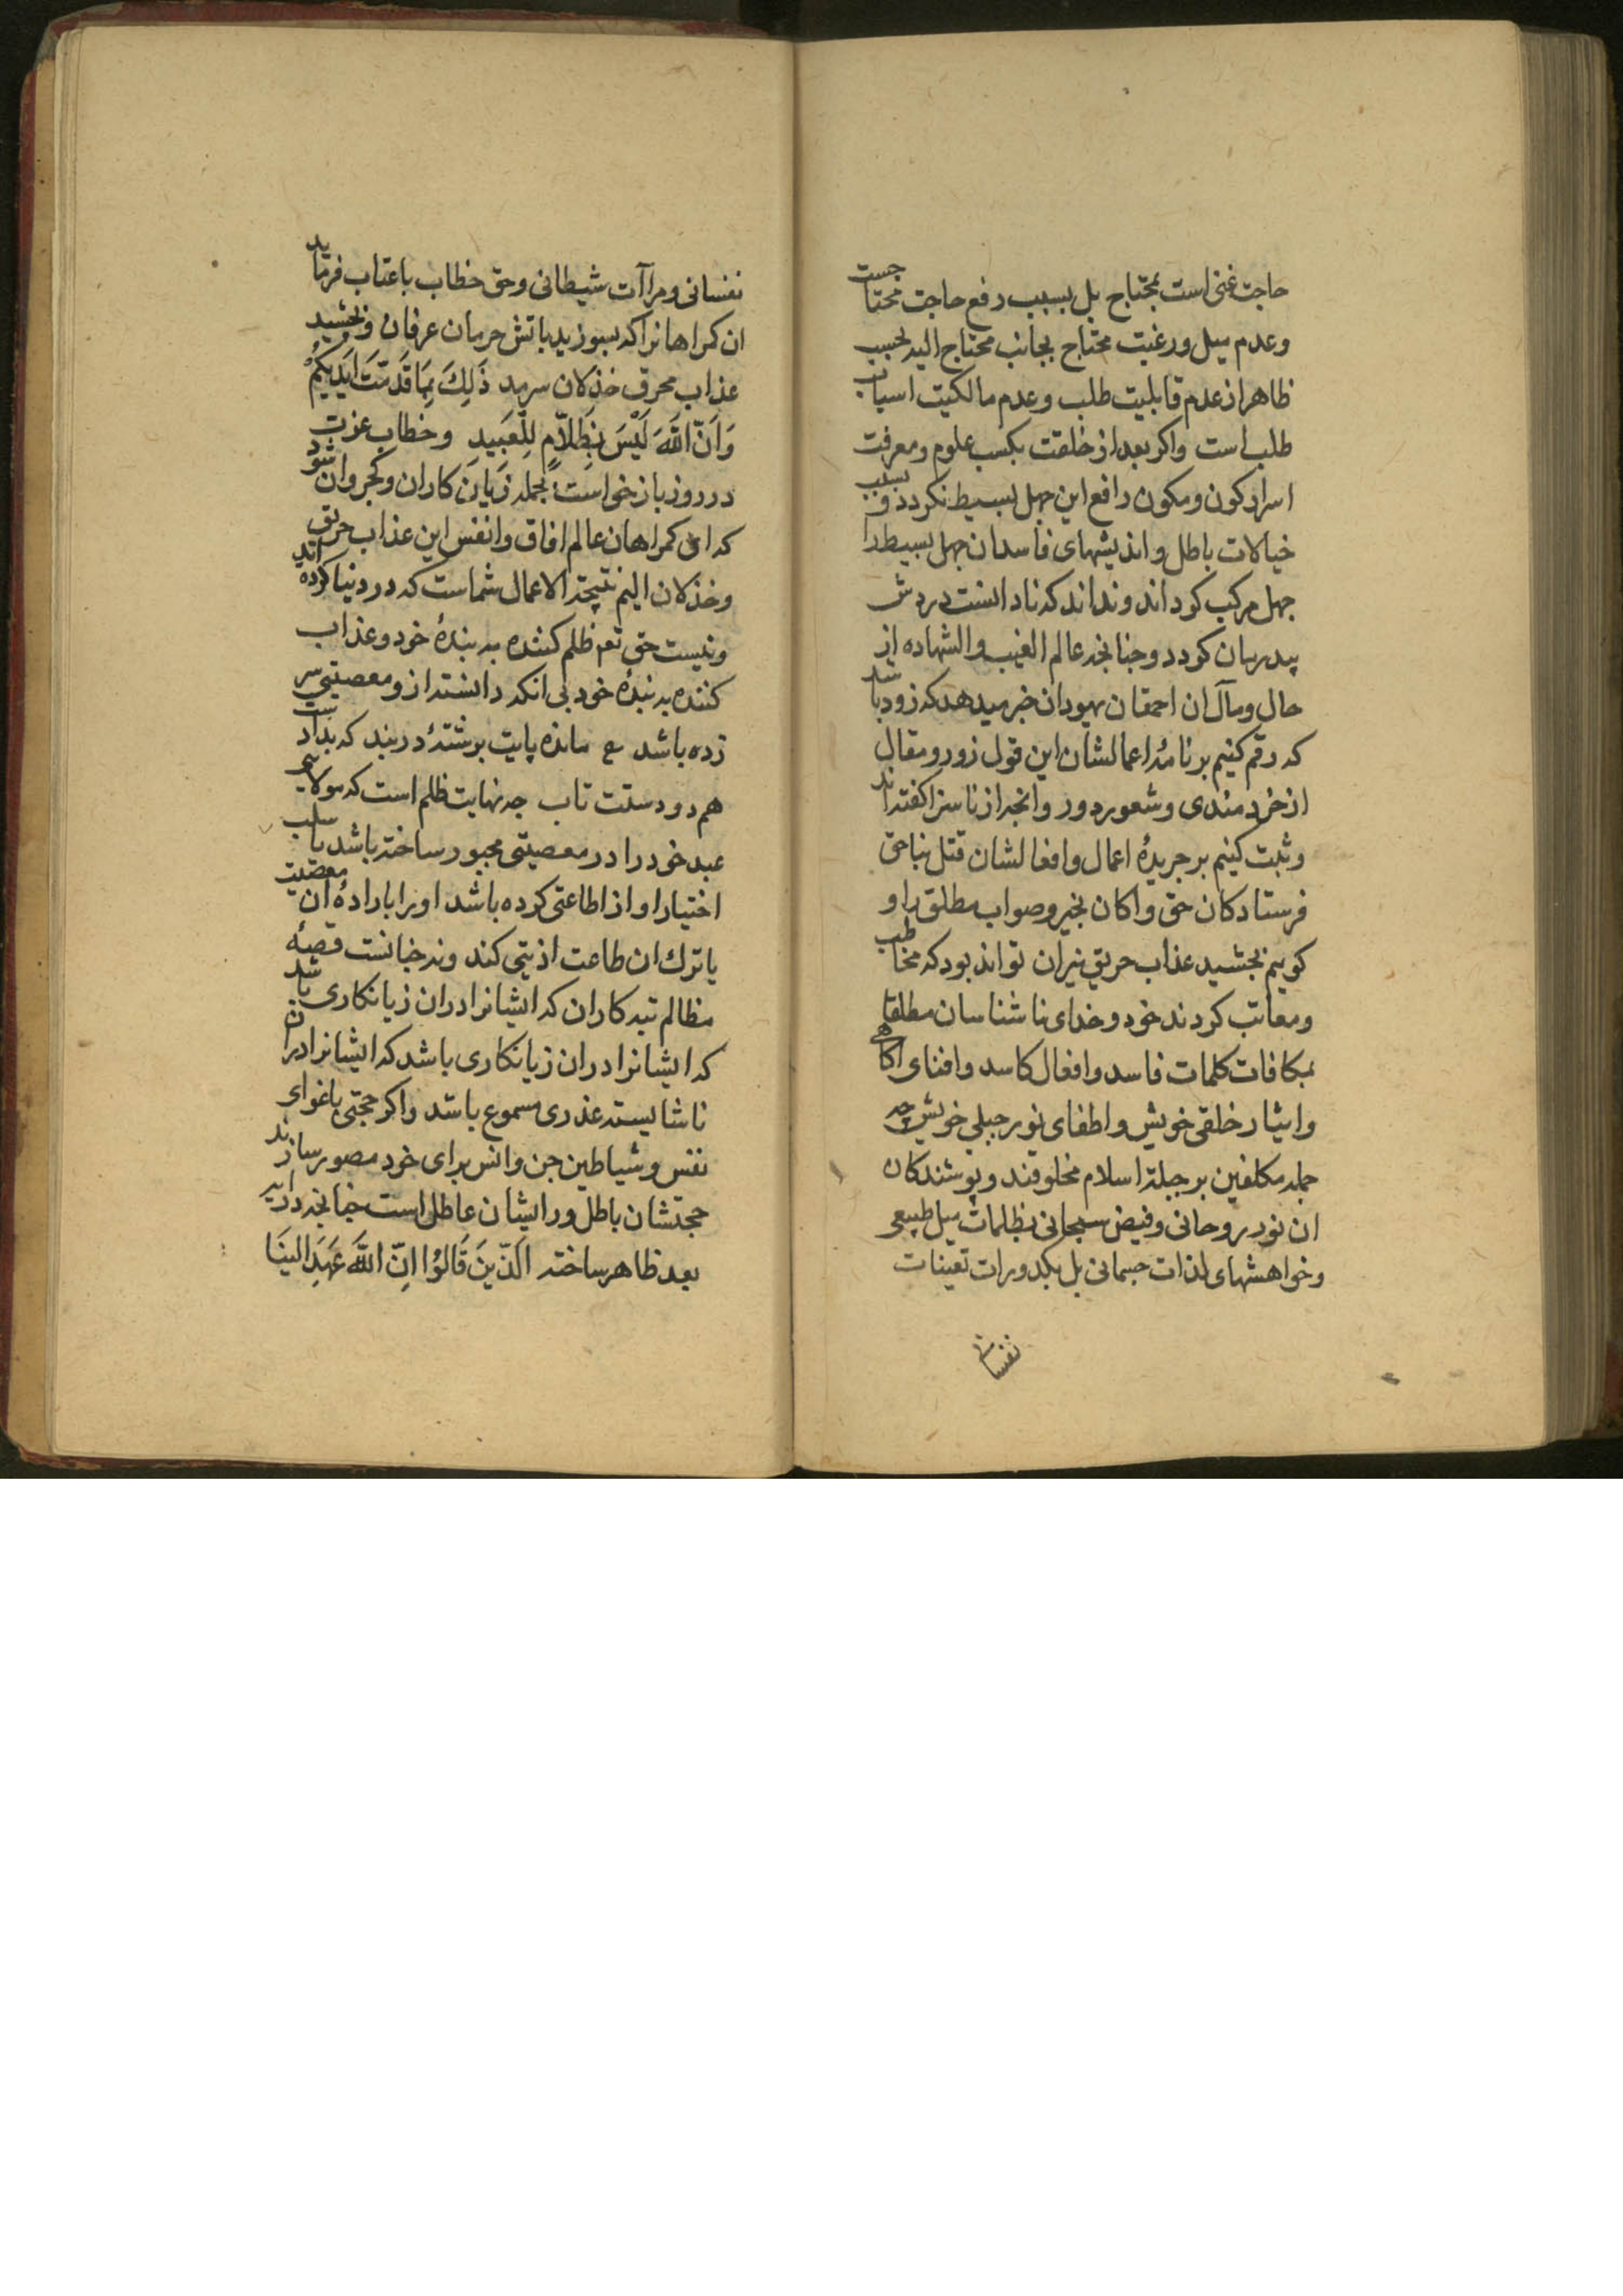 حاجت غنی است بمحتاج بل بسبب رفع حاجت محتاجست
وعدم میل ورغبت محتاج بجانب محتاج الیه بحسب
ظاهر از عدم قابلیت طلب وعدم مالکیت اسباب
طلب است واکر بعد از خلقت بکسب علوم ومعرفت
اسرار کون ومکون رافع این جهل بسیط نکردد وبسبب
خیالات باطل واندیشهای فاسدان جهل بسیط را
جهل مرکب کرداند ونداند که نادانست دردش
بیدرمان کردد وچنانچه عالم الغیب والشهاده از
حال ومآل ان احمقان یهودان خبر میدهد که زود باشد
که رقم کنیم بر نامهٔ اعمالشان این قول زور ومقال
از خردمندی وشعور دور وانچه از ناسزا کفته اند
وثبت کنیم بر جریدهٔ اعمال وافعالشان قتل بناحق
فرستادکان حق واکان بخیر وصواب مطلق را و
کوییم بچشید عذاب حریق نیران تواند بود که مخاطب
ومعاتب کردند خود وخدای ناشناسان مطلقا
بمکافات کلمات فاسد وافعال کاسد وافنای اکاهی
وایثار خلقی خویش واطفای نور جبلی خویش چه
جمله مکلفین بر جبلة اسلام مخلوقند وپوشندکان
ان نور روحانی وفیض سبحانی بظلمات میل طبیعی
وخواهشهای لذات جسمانی بل بکدورات تعینات
نفسانی
نفسانی ومراآت شیطانی وحق خطاب باعتاب فرماید
ان کمراهانرا که بسوزید باتش حرمان عرفان وبچشید
عذاب محرق خذلان سرمد ذَلِكَ بِمَا قَدَّمَتْ اَیْدِیكُمْ
وَاَنَّ اللّٰهَ لَیْسَ بِظَلَّامٍ لِلْعَبِید وخطاب عزت
در روز بازخواست بجمله زیان کاران وکجروان شود
که ای کمراهان عالم افاق وانفس این عذاب حریق
وخذلان الیم نتیجة الاعمال شماست که در دنیا کرده اید
ونیست حق تع ظلم کننده به بندهٔ خود وعذاب
کننده به بندهٔ خود بی انکه دانسته از و معصیتی سر
زده باشد ع مانده پایت برشتهٔ دربند که بداد
هم دو دستت تاب چه نهایت ظلم است که مولایی
عبد خود را در معصیتی مجبور ساخته باشد یا سلب
اختیار او از اطاعتی کرده باشد او را باراده ان معصیت
یا ترك ان طاعت اذیتی کند ونه چنانست قصهٔ
مظالم تبه کاران که ایشانرا دران زیانکاری باشد
که ایشانرا دران زیانکاری باشد که ایشانرا دران
ناشایسته عذری مسموع باشد واکر حجتی باغوای
نفس وشیاطین جن وانس برای خود مصور سازند
حجتشان باطل ور ایشان عاطل است چنانچه در ایه
بعد ظاهر ساخته اَلَّذِینَ قَالُوْا اِنَّ اللّٰهَ عَهِدَ الینَا